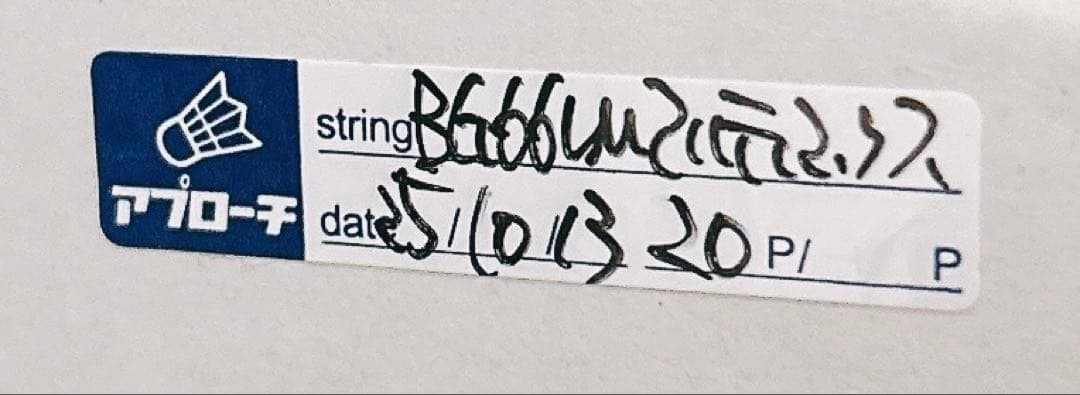 アプローチ
string BG66
date 25/10/13 20 P/ P